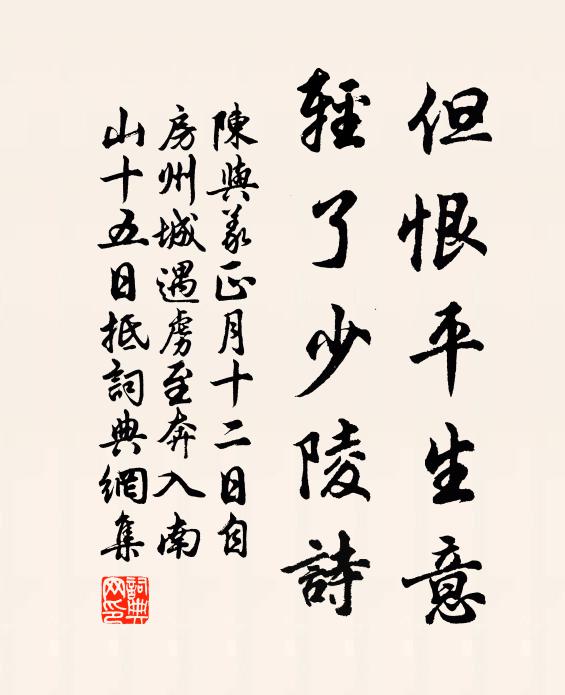 但恨平生意
輕了少陵詩
陳與義正月十二日自
房州城遇虜至奔入南
山十五日抵詞典網集
詞典網印